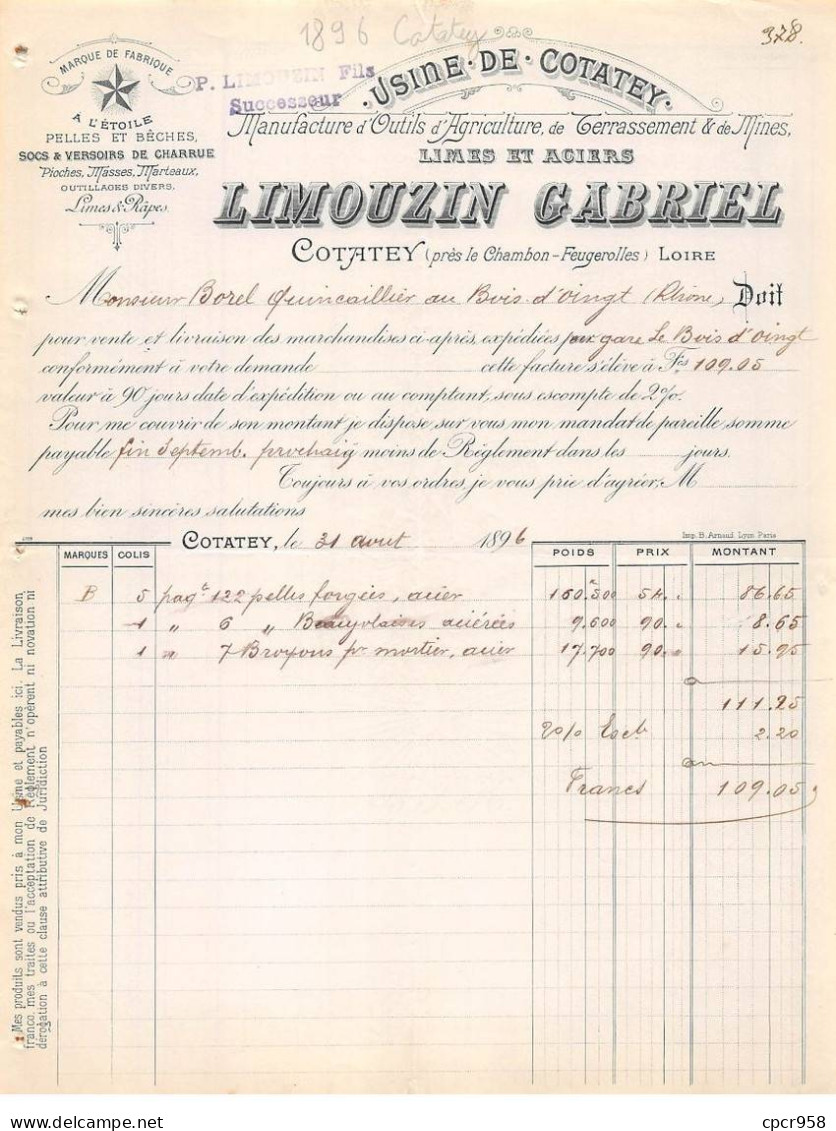 1896 Cotatey
378
MARQUE DE FABRIQUE
À L'ÉTOILE
PELLES ET BÊCHES,
SOCS & VERSOIRS DE CHARRUE
Pioches, Masses, Marteaux,
OUTILLAGES DIVERS,
Limes & Râpes.
P. LIMOUZIN Fils
Successeur
USINE · DE · COTATEY
Manufacture d'Outils d'Agriculture, de Terrassement & de Mines,
LIMES ET ACIERS
LIMOUZIN GABRIEL
COTATEY (près le Chambon-Feugerolles) LOIRE
Monsieur Borel Quincaillier au Bois d'oingt (Rhône) Doit
pour vente et livraison des marchandises ci-après, expédiées par gare Le Bois d'oingt
conformément à votre demande cette facture s'élève à Fcs 109.05
valeur à 90 jours date d'expédition ou au comptant, sous escompte de 2%.
Pour me couvrir de son montant je dispose sur vous mon mandat de pareille somme
payable fin Septemb. prochain moins de Règlement dans les jours.
Toujours à vos ordres, je vous prie d'agréer, M
mes bien sincères salutations
COTATEY, le 31 aout 1896
Imp. B. Arnaud Lyon Paris
MARQUES COLIS POIDS PRIX MONTANT
B 5 paqts 122 pelles forgées, acier 160.500 54. " 86.65
1 " 6 " Beaujolaises aciérées 9.600 90. " 8.65
1 " 7 Broyons pr mortier, acier 17.700 90. " 15.95
111.25
2% Escte 2.20
Francs 109.05
Mes produits sont vendus pris à mon Usine et payables ici. La Livraison
franco, mes traites ou l'acceptation de Règlement n'opèrent ni novation ni
dérogation à cette clause attributive de Juridiction
cpcr958